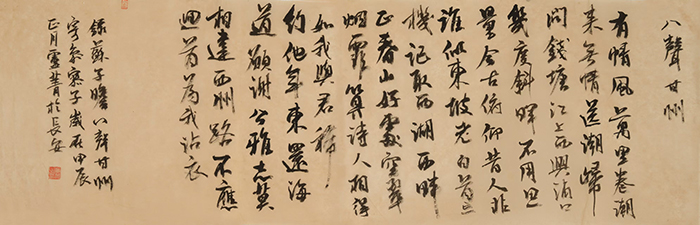 八聲甘州
有情風萬里卷潮
来無情送潮歸
问錢塘江上西興浦口
幾度斜暉不用思
量今古俯仰昔人非
誰似東坡老白首忘
機记取西湖西畔
正春山好處空翠
烟霏算詩人相得
如我與君稀
约他年東還海
道願謝公雅志莫
相違西州路不應
迴首為我沾衣
錄蘇子瞻八聲甘州
寄參寥子歲在甲辰
正月於長安